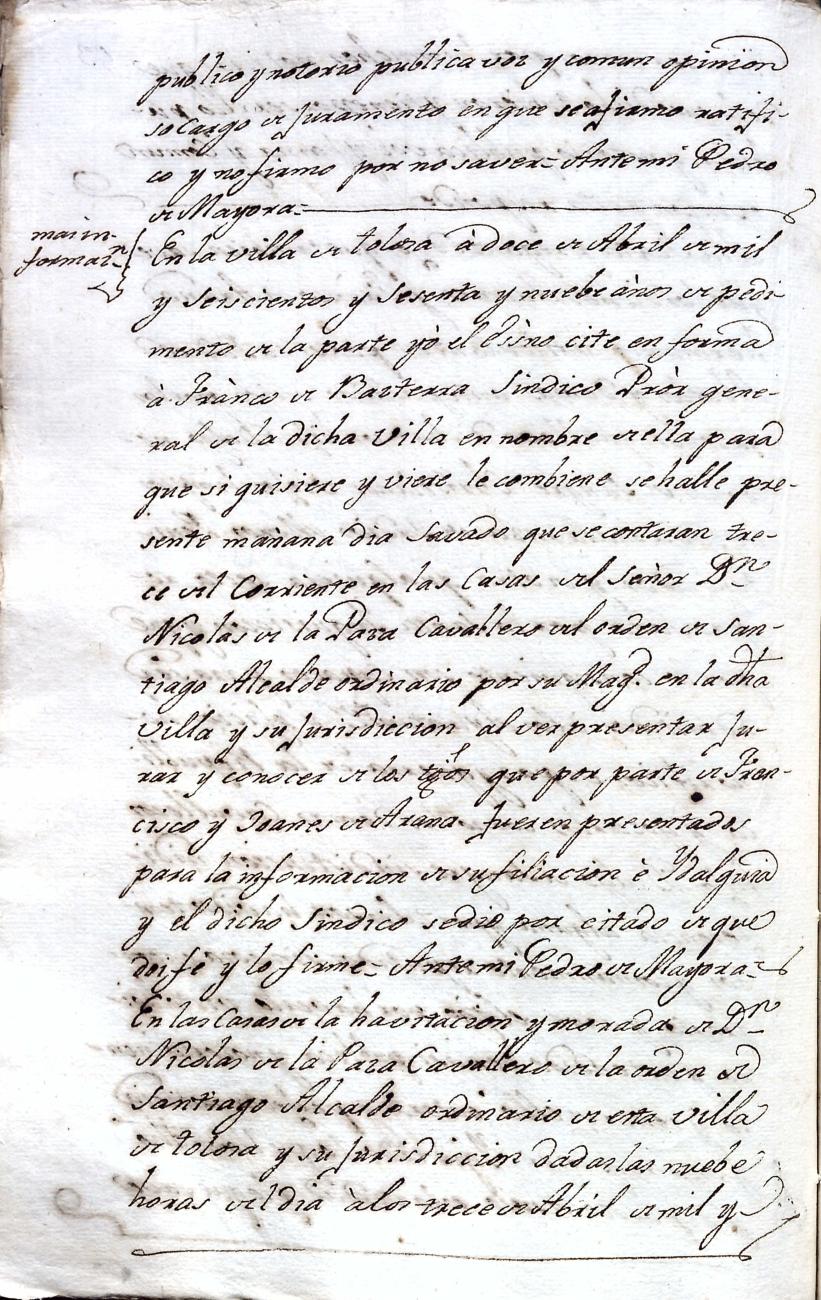 publico y notorio publica voz y comun opinion
so cargo de Juramento en que se afirmo ratifi-
co y no firmo por no saver = Ante mi Pedro
de Mayora =
mas in-
formaz.n
En la villa de tolosa à doce de Abril de mil
y Seiscientos y Sesenta y nuebe años de pedi-
mento de la parte yò el Essno cite en forma
à Franco de Basterra Sindico Pròr gene-
ral de la dicha Villa en nombre de ella para
que si quisiere y viere le combiene se halle pre-
sente mañana dia Savado que se contaran tre-
ce del Corriente en las Casas del Señor Dn
Nicolàs de la Paza Cavallero del orden de San-
tiago Alcalde ordinario por su Magd. en la dha
Villa y su Jurisdiccion al ver presentar Ju-
rar y conocer de los tgos que por parte de Fran-
cisco y Joanes de Arana fueren presentados
para la informacion de su filiacion è Ydalguia
y el dicho Sindico se dio por citado de que
doi fè y lo firme = Ante mi Pedro de Mayora =
En las Casas de la havitacion y morada de Dn
Nicolas de la Paza Cavallero de la orden de
Santiago Alcalde ordinario de esta Villa
de tolosa y su Jurisdiccion dadas las nuebe
horas del dia à los trece de Abril de mil y